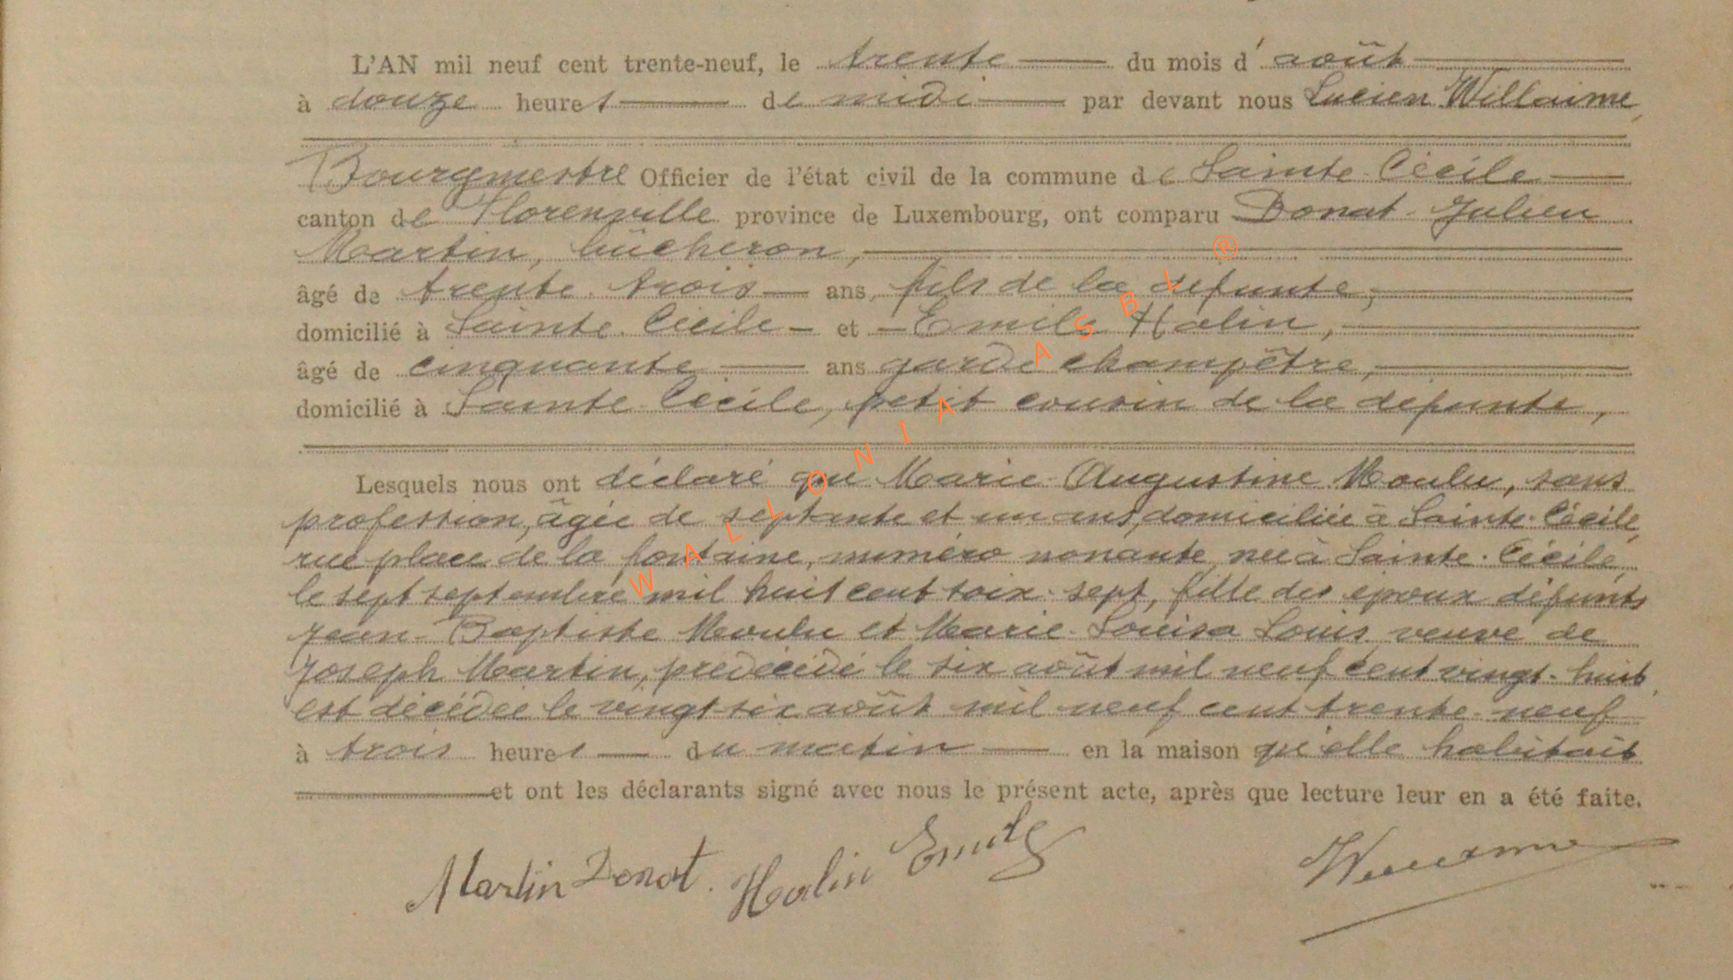 L'AN mil neuf cent trente-neuf, le trente du mois d'août
à douze heures de midi par devant nous Lucien Willaime,
Bourgmestre Officier de l'état civil de la commune de Sainte-Cécile
canton de Florenville province de Luxembourg, ont comparu Donat-Julien
Martin, bûcheron,
âgé de trente-trois ans, fils de la défunte,
domicilié à Sainte-Cécile et Emile Halin,
âgé de cinquante ans garde champêtre,
domicilié à Sainte-Cécile, petit cousin de la défunte,
Lesquels nous ont déclaré que Marie-Augustine Moulu, sans
profession, âgée de septante et un ans, domiciliée à Sainte-Cécile,
rue place de la fontaine, numéro nonante, née à Sainte-Cécile,
le sept septembre mil huit cent soix-sept, fille des époux défunts
Jean-Baptiste Moulu et Marie-Louisa Louis veuve de
Joseph Martin, prédécédé le six août mil neuf cent vingt-huit,
est décédée le vingt-six août mil neuf cent trente-neuf
à trois heures du matin en la maison qu'elle habitait
et ont les déclarants signé avec nous le présent acte, après que lecture leur en a été faite.
Martin Donat. Halin Emile
WALLONIA ASBL ®